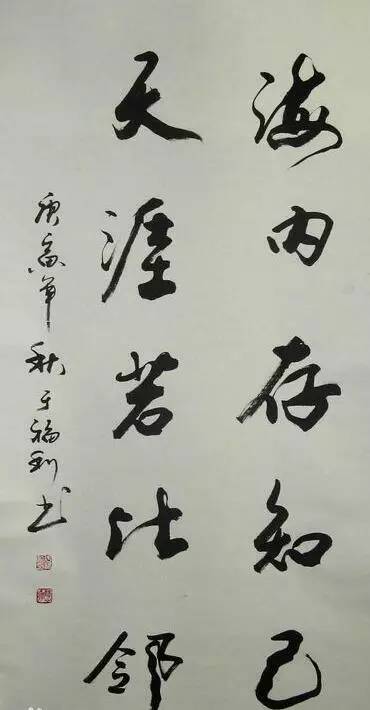 海内存知己
天涯若比邻
庚寅年秋于福利书